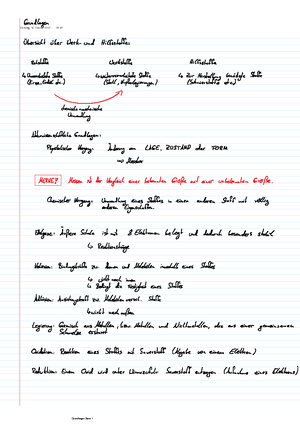 Grundlagen
Übersicht über Werk- und Hilfsstoffe:
Rohstoffe Werkstoffe Hilfsstoffe
↳ Unveredelte Stoffe ↳ weiterverarbeitete Stoffe ↳ Zur Herstellung benötigte Stoffe
chemische/mechanische
Umwandlung
Naturwissenschaftliche Grundlagen:
Physikalischer Vorgang: Änderung von LAGE, ZUSTAND oder FORM
⇒ Messbar
MERKE! Messen ist der Vergleich einer bekannten Größe mit einer unbekannten Größe.
Chemischer Vorgang: Umwandlung eines Stoffes in einen anderen Stoff mit völlig
anderen Eigenschaften.
Edelgase: Äußere Schale ist mit 8 Elektronen belegt und dadurch besonders stabil
↳ Reaktionsträge
Kohäsion: Bindungskräfte zw. Atomen und Molekülen innerhalb eines Stoffes
↳
↳ Bedingt die Festigkeit eines Stoffes
Adhäsion: Anziehungskraft zw. Molekülen versch. Stoffe
↳
Legierung: Gemisch aus Metallen, bzw. Metallen und Nichtmetallen, die aus einer gemeinsamen
Schmelze erstarrt
Oxidation: Reaktion eines Stoffes mit Sauerstoff (Abgabe von einem Elektron)
Reduktion: Einem Oxid wird unter Wärmezufuhr Sauerstoff entzogen (Aufnahme eines Elektrons)
Grundlagen Seite 1